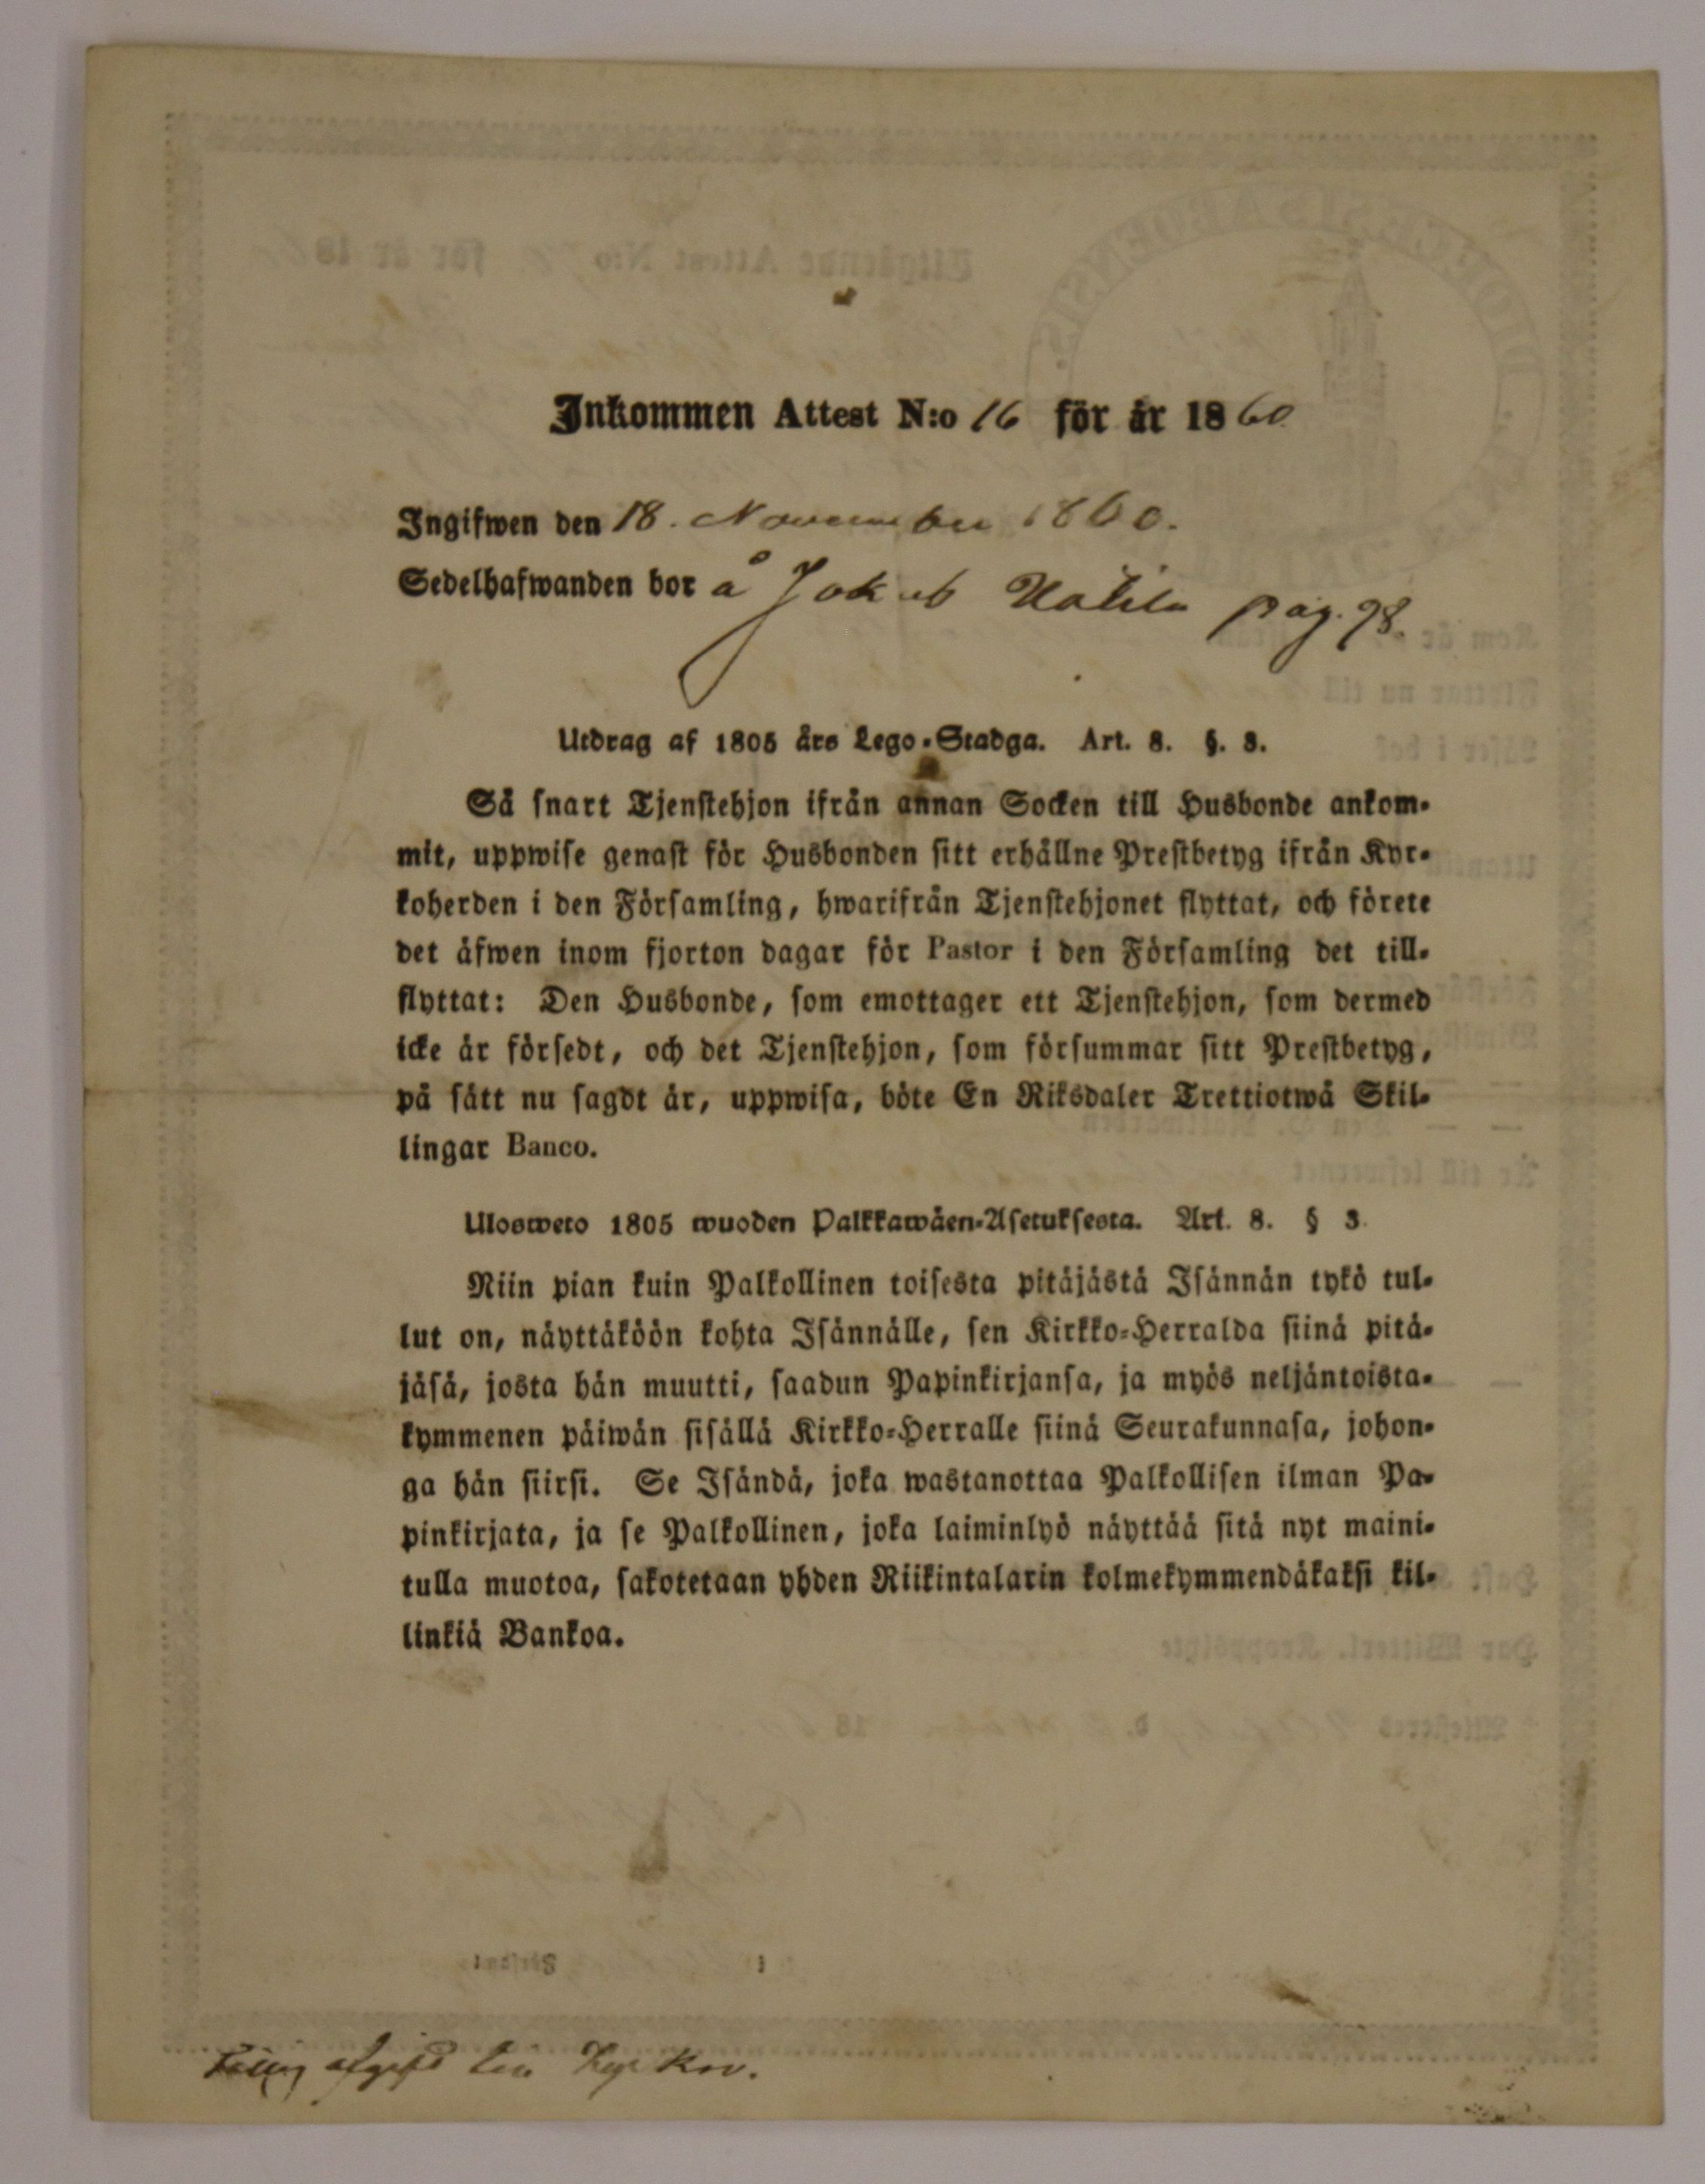 Inkommen Attest N:o 16 för år 1860
Ingifwen den 18. November 1860.
Sedelhafwanden bor å Jakob pag. 98.
Utdrag af 1805 års Lego-Stadga. Art. 8. §. 3.
Så snart Tjenstehjon ifrån annan Socken till Husbonde ankom-
mit, uppwise genast för Husbonden sitt erhållne Prestbetyg ifrån Kyr-
koherden i den Församling, hwarifrån Tjenstehjonet flyttat, och förete
det äfwen inom fjorton dagar för Pastor i den Församling det till-
flyttat: Den Husbonde, som emottager ett Tjenstehjon, som dermed
icke är försedt, och det Tjenstehjon, som försummar sitt Prestbetyg,
på sätt nu sagdt är, uppwisa, böte En Riksdaler Trettiotwå Skil-
lingar Banco.
Ulosweto 1805 wuoden Palkkawäen-Asetuksesta. Art. 8. § 3.
Niin pian kuin Palkollinen toisesta pitäjästä Isännän tykö tul-
lut on, näyttäköön kohta Isännälle, sen Kirkko-Herralda siinä pitä-
jäsä, josta hän muutti, saadun Papinkirjansa, ja myös neljäntoista-
kymmenen päiwän sisällä Kirkko-Herralle siinä Seurakunnasa, johon-
ga hän siirsi. Se Isändä, joka wastanottaa Palkollisen ilman Pa-
pinkirjata, ja se Palkollinen, joka laiminlyö näyttää sitä nyt maini-
tulla muotoa, sakotetaan yhden Riikintalarin kolmekymmendäkaksi kil-
linkiä Bankoa.